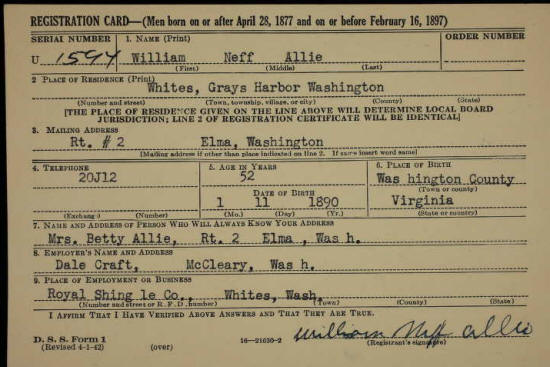 REGISTRATION CARD—(Men born on or after April 28, 1877 and on or before February 16, 1897)
SERIAL NUMBER 1. NAME (Print) ORDER NUMBER
U 1594 William Neff Allie
(First) (Middle) (Last)
2 PLACE OF RESIDENCE (Print)
Whites, Grays Harbor Washington
(Number and street) (Town, township, village, or city) (County) (State)
[THE PLACE OF RESIDENCE GIVEN ON THE LINE ABOVE WILL DETERMINE LOCAL BOARD
JURISDICTION; LINE 2 OF REGISTRATION CERTIFICATE WILL BE IDENTICAL]
3. MAILING ADDRESS
Rt. # 2 Elma, Washington
[Mailing address if other than place indicated on line 2. If same insert word same]
4. TELEPHONE 5. AGE IN YEARS 6. PLACE OF BIRTH
20J12 52 Was hington County
(Town or county)
DATE OF BIRTH
1 11 1890 Virginia
(Exchange) (Number) (Mo.) (Day) (Yr.) (State or country)
7. NAME AND ADDRESS OF PERSON WHO WILL ALWAYS KNOW YOUR ADDRESS
Mrs. Betty Allie, Rt. 2 Elma , Was h.
8. EMPLOYER'S NAME AND ADDRESS
Dale Craft, McCleary, Was h.
9. PLACE OF EMPLOYMENT OR BUSINESS
Royal Shing le Co., Whites, Wash.
(Number and street or R. F. D. number) (Town) (County) (State)
I AFFIRM THAT I HAVE VERIFIED ABOVE ANSWERS AND THAT THEY ARE TRUE.
D. S. S. Form 1 William Neff Allie
(Revised 4-1-42) (over) 16—21630-2 (Registrant's signature)